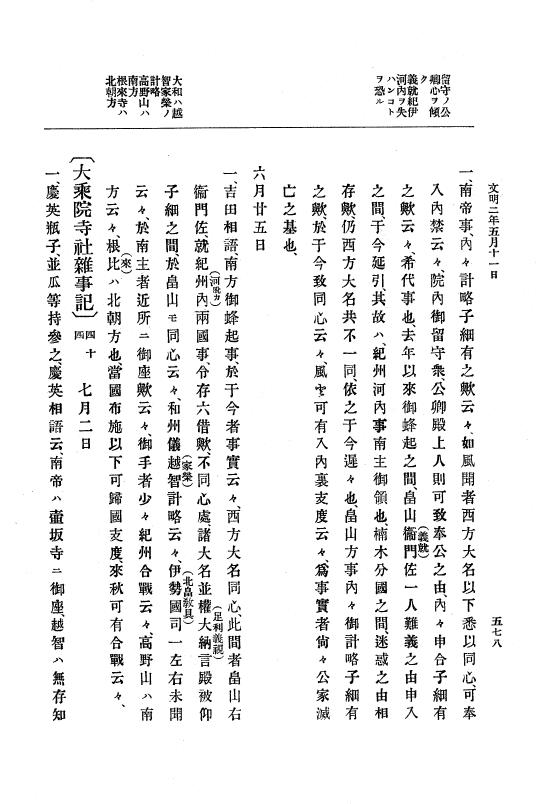 文明二年五月十一日
五七八
留守ノ公
卿心ヲ傾
ク
義就紀伊
河内ヲ失
ハンコト
ヲ恐ル
大和ハ越
智家榮ノ
計略
高野山ハ
南方
根來寺ハ
北朝方
一、南帝事、內々計略子細有之歟云々、如風聞者西方大名以下悉以同心、可奉
入內禁云々、院內御留守衆、公卿殿上人則可致奉公之由、內々申合子細有
之歟云々、希代事也、去年以來御蜂起之間、畠山衞門佐一人難義之由申入
(義就)
之間、于今延引、其故ハ、紀州河內事南主御領也、楠木分國之間、迷惑之由相
存歟、仍西方大名共不一同、依之于今遲々也、畠山方事內々御計略子細有
之歟、於于今致同心云々、風ㇳ可有入內裏支度云々、爲事實者尙々公家滅
亡之基也、
六月廿五日
一、吉田相語、南方御蜂起事于今者事實云々、西方大名同心、此間者畠山右
衞門佐就紀州內兩國事、令存六借歟、不同心處、諸大名並權大納言殿被仰
(河脫カ)
(足利義視)
子細之間、於畠山モ同心云々、和州儀越智計略云々、伊勢國司一左右未聞
(家榮)
(北畠敎具)
云々、於南主者近所ニ御座歟云々、御手者少々紀州合戰云々、高野山ハ南
方云々、根比ハ北朝方也、當國布施以下可歸國支度、來秋可有合戰云々、
(來)
〔大乘院寺社雜事記〕 四十四 七月二日
一、慶英瓶子、並瓜等持參之、慶英相語云、南帝ハ壷坂寺ニ御座、越智ハ無存知